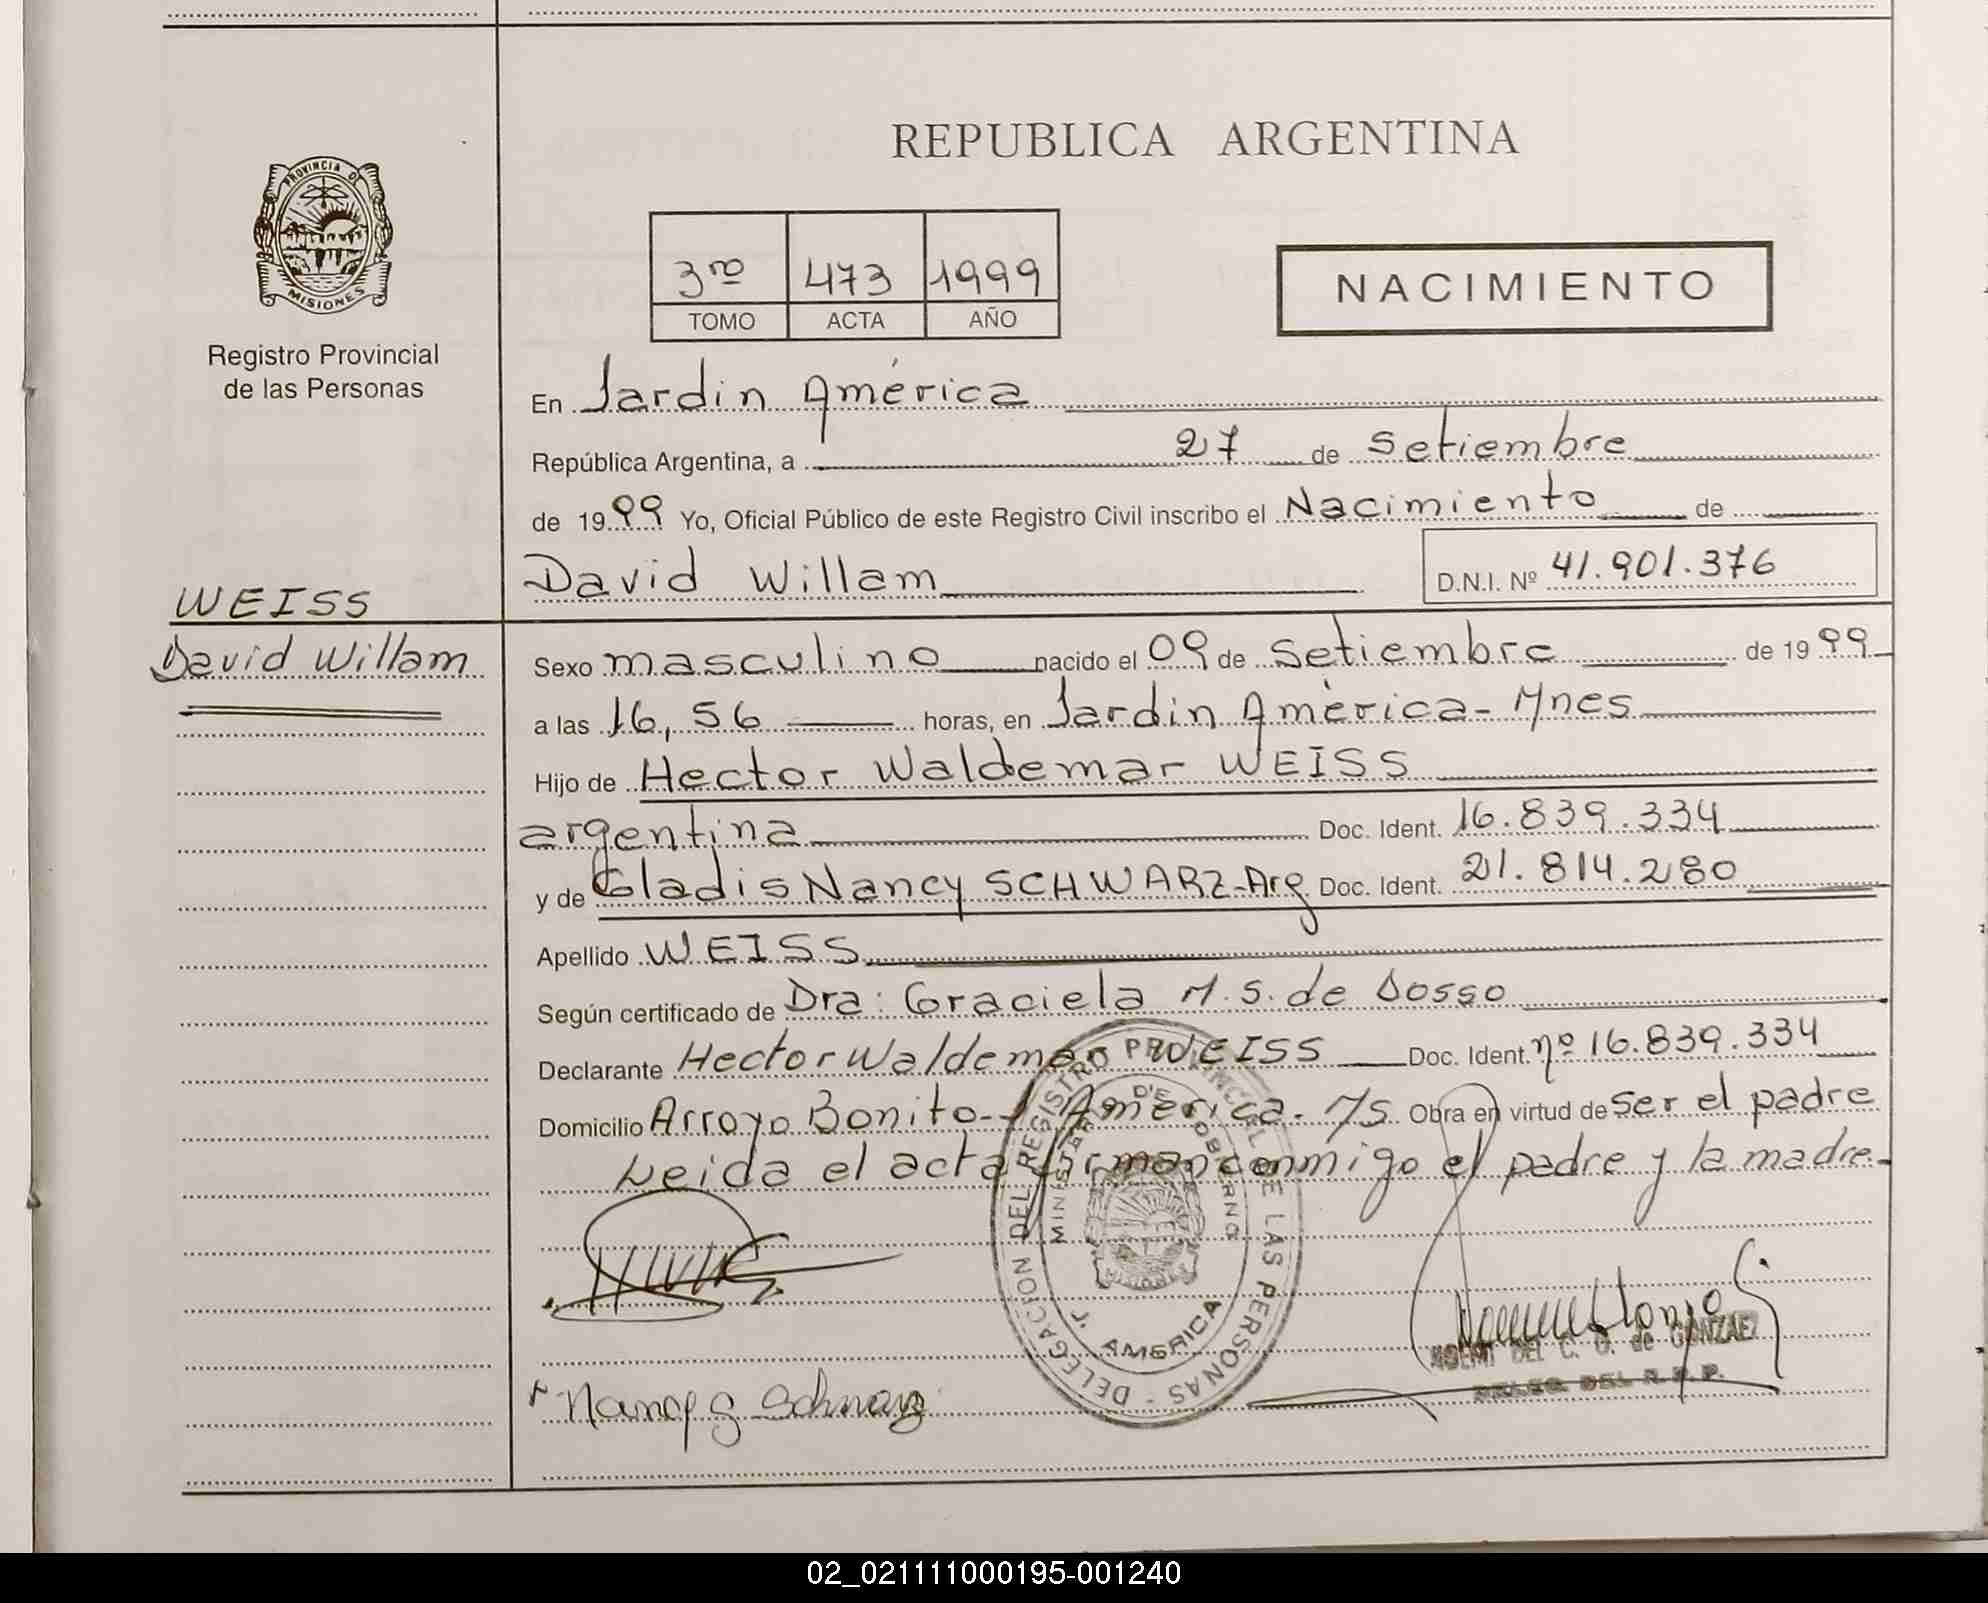 REPUBLICA ARGENTINA
PROVINCIA DE
MISIONES
Registro Provincial
de las Personas
3ro 473 1999
TOMO ACTA AÑO
NACIMIENTO
En Jardin América
República Argentina, a 27 de Setiembre
de 1999 Yo, Oficial Público de este Registro Civil inscribo el Nacimiento de
David Willam D.N.I. Nº 41.901.376
WEISS
David Willam
Sexo masculino nacido el 09 de Setiembre de 1999
a las 16,56 horas, en Jardin América - Mnes
Hijo de Hector Waldemar WEISS
argentina Doc. Ident. 16.839.334
y de Gladis Nancy SCHWARZ-Arg Doc. Ident. 21.814.280
Apellido WEISS
Según certificado de Dra: Graciela M. S. de Dosso
Declarante Hector Waldemar WEISS Doc. Ident. nº 16.839.334
Domicilio Arroyo Bonito - J. América - Ms Obra en virtud de ser el padre
Leida el acta firman conmigo el padre y la madre
DELEGACION DEL REGISTRO PROVINCIAL DE LAS PERSONAS
MINISTERIO DE GOBIERNO
J. AMERICA
DEL C. G. de GONZALEZ
DELEG. DEL R.P.P.
Nancy G Schwarz
02_021111000195-001240